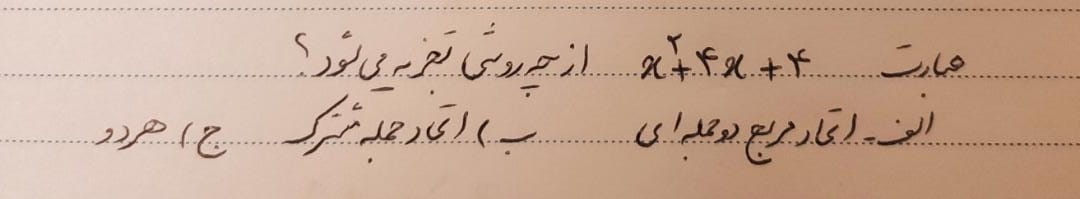 عبارت x²+۴x+۴ از چه روشی تجزیه می‌شود؟
الف - اتحاد مربع دوجمله‌ای ب) اتحاد جمله مشترک ج) هر دو